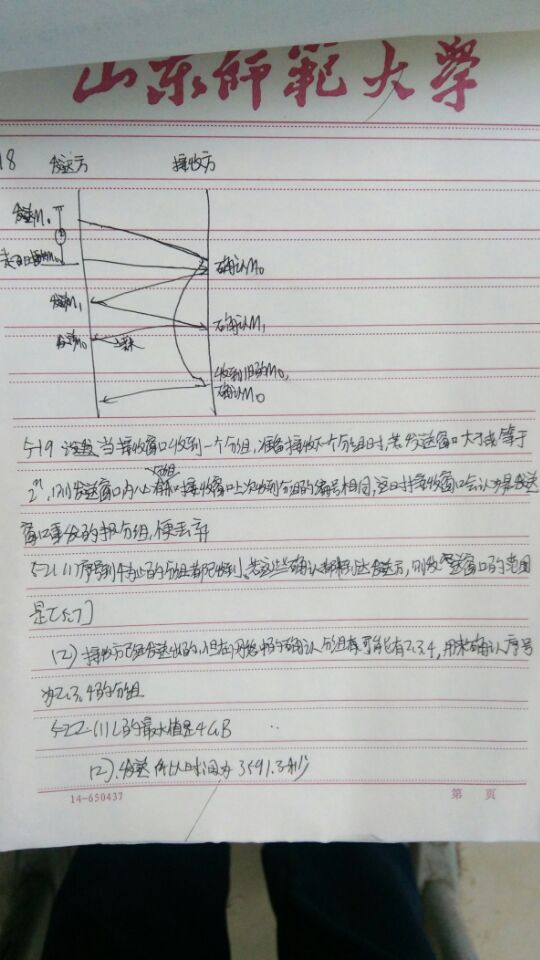 山东师范大学
18 发送方 接收方
发送M0
确认M0
发送M1
确认M1
发送M0
收到旧的M0,
确认M0
5-19 当接收窗口收到一个分组,准备接收下一个分组时,若发送窗口大于或等于
2ⁿ,则发送窗口内必有分组和接收窗口上次收到分组的编号相同,这时接收窗口会认为是发送
窗口重发的旧分组,便丢弃
5-21 (1) 序号到4为止的分组都已收到。若这些确认都到达发送方,则发送窗口的范围
是[5,7]
(2) 接收方已经发送出的,但在网络中的确认分组可能有2,3,4,用来确认序号
为2,3,4的分组
5-22 (1) L的最大值是4GB
(2).发送所以时间为3591.3秒
14-650437
第 页